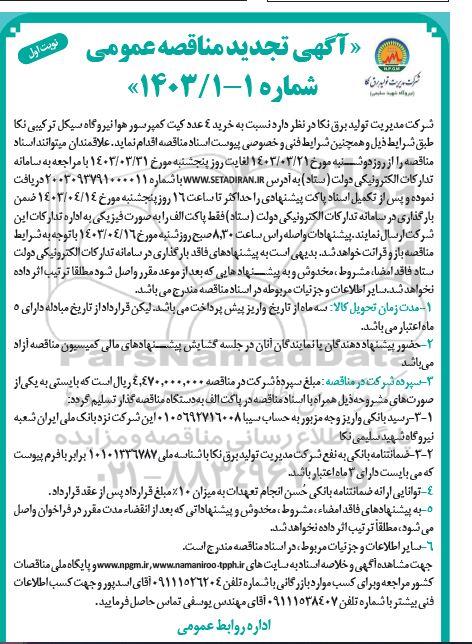 نوبت اول
«آگهی تجدید مناقصه عمومی
شماره ۱-۱۴۰۳/۱»
N.P.G.M
شرکت مدیریت تولید برق نکا
(نیروگاه شهید سلیمی)
شرکت مدیریت تولید برق نکا در نظر دارد نسبت به خرید ۴ عدد کیت کمپرسور هوا نیروگاه سیکل ترکیبی نکا
طبق شرایط ذیل و همچنین شرایط فنی و خصوصی پیوست اسناد مناقصه اقدام نماید. علاقمندان میتوانند اسناد
مناقصه را از روز دوشنبه مورخ ۱۴۰۳/۰۳/۲۱ لغایت روز پنجشنبه مورخ ۱۴۰۳/۰۳/۳۱ با مراجعه به سامانه
تدارکات الکترونیکی دولت (ستاد) به آدرس WWW.SETADIRAN.IR با شماره ۲۰۰۳۰۹۳۷۹۱۰۰۰۰۱۱ دریافت
نموده و پس از تکمیل اسناد پاکت پیشنهادی را حداکثر تا ساعت ۱۶ روز پنجشنبه مورخ ۱۴۰۳/۰۴/۱۴ ضمن
بارگذاری در سامانه تدارکات الکترونیکی دولت (ستاد) فقط پاکت الف را به صورت فیزیکی به اداره تدارکات این
شرکت ارسال نمایند. پیشنهادات واصله راس ساعت ۸،۳۰ صبح روز شنبه مورخ ۱۴۰۳/۰۴/۱۶ با توجه به شرایط
مناقصه باز و قرائت خواهد شد. بدیهی است به پیشنهادهای فاقد بارگذاری در سامانه تدارکات الکترونیکی دولت
ستاد فاقد امضا، مشروط، مخدوش و به پیشنهادهایی که بعد از موعد مقرر واصل شود مطلقا ترتیب اثر داده
نخواهد شد. سایر اطلاعات و جزئیات مربوطه در اسناد مناقصه مندرج می باشد.
۱-مدت زمان تحویل کالا: سه ماه از تاریخ واریز پیش پرداخت می باشد. لیکن قرارداد از تاریخ مبادله دارای ۵
ماه اعتبار می باشد.
۲-حضور پیشنهاد دهندگان یا نمایندگان آنان در جلسه گشایش پیشنهادهای مالی کمیسیون مناقصه آزاد
می باشد
۳-سپرده شرکت در مناقصه : مبلغ سپرده شرکت در مناقصه ۴,۴۷۰,۰۰۰,۰۰۰ ریال است که بایستی به یکی از
صورت های مشروحه ذیل همراه با اسناد مناقصه در پاکت الف به دستگاه مناقصه گذار تسلیم گردد:
۳-۱-رسید بانکی واریز وجه مزبور به حساب سیبا ۰۱۰۵۶۹۲۷۱۶۰۰۸ این شرکت نزد بانک ملی ایران شعبه
نیروگاه شهید سلیمی نکا
۳-۲-ضمانتنامه بانکی به نفع شرکت مدیریت تولید برق نکا با شناسه ملی ۱۰۱۰۱۳۳۶۷۸۷ برابر با فرم پیوست
که می بایست دارای ۳ ماه اعتبار باشد.
۴-توانایی ارائه ضمانتنامه بانکی حُسن انجام تعهدات به میزان ۱۰٪ مبلغ قرارداد پس از عقد قرارداد.
۵-به پیشنهادهای فاقد امضاء، مشروط، مخدوش و پیشنهاداتی که بعد از انقضاء مدت مقرر در فراخوان واصل
می شود، مطلقاً ترتیب اثر داده نخواهد شد.
۶-سایر اطلاعات و جزئیات مربوط، در اسناد مناقصه مندرج است.
جهت مشاهده آگهی و خلاصه اسناد به سایت های www.npgm.ir,www.namaniroo-tpph.ir و پایگاه ملی مناقصات
کشور مراجعه و برای کسب موارد بازرگانی با شماره تلفن ۰۹۱۱۱۵۲۶۲۰۴ آقای اسدپور و جهت کسب اطلاعات
فنی بیشتر با شماره تلفن ۰۹۱۱۱۵۳۸۴۰۷ آقای مهندس یوسفی تماس حاصل فرمایید.
اداره روابط عمومی